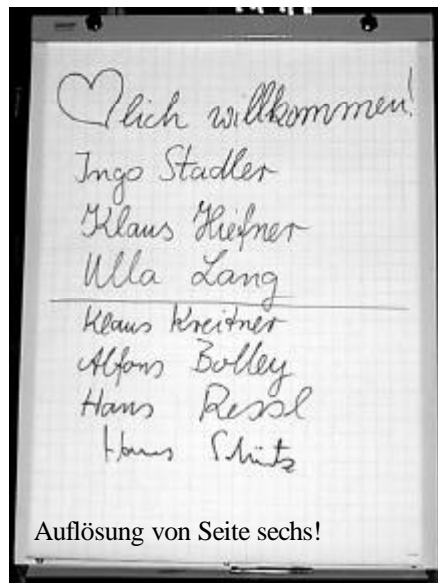 ♡lich willkommen!
Ingo Stadler
Klaus Hiefner
Ulla Lang
Klaus Kreitner
Alfons Bolley
Hans Ressl
Hans Schütz
Auflösung von Seite sechs!